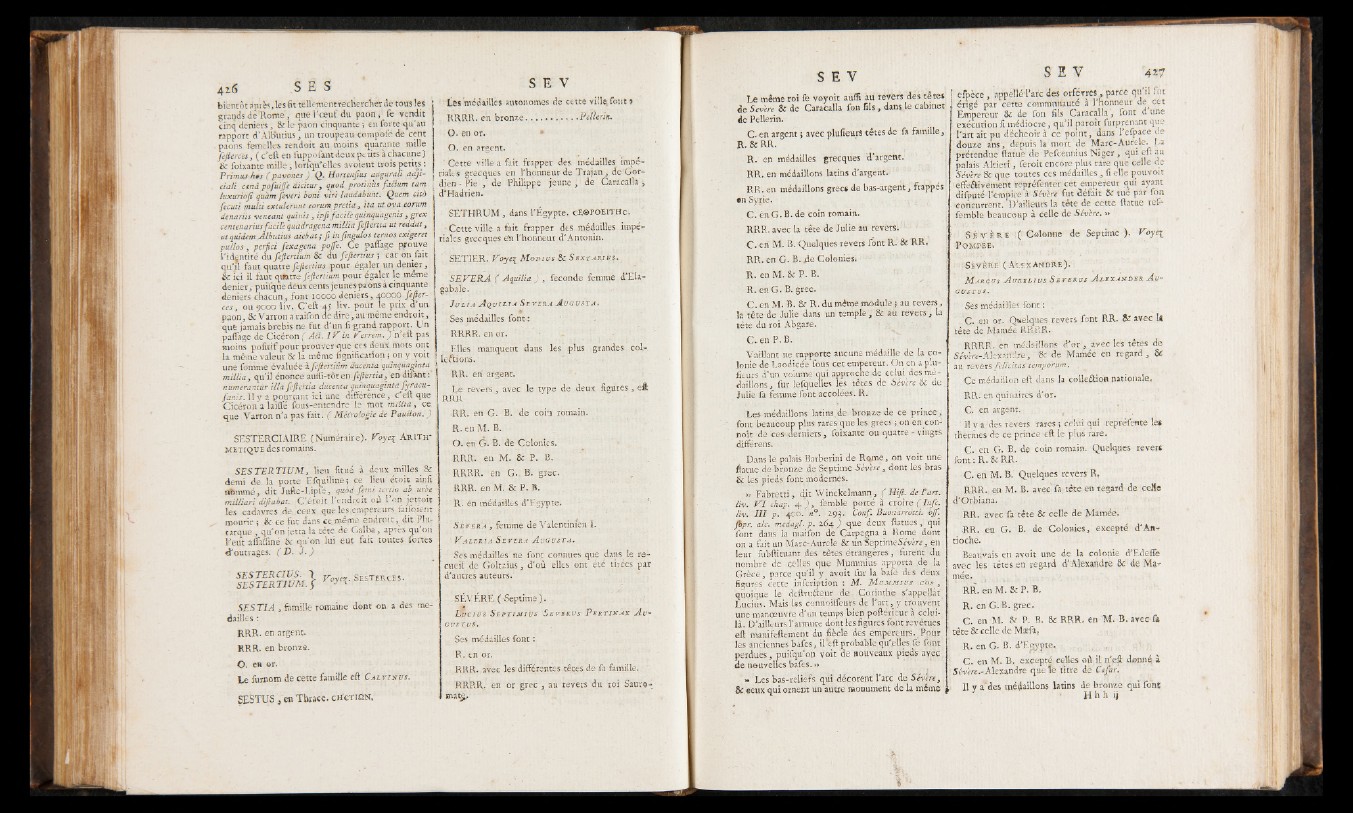 426 SES
bientôt après, les fit tellement rechercher de tous les
grands de Rome, que l'œuf du paon, se vendit
cinq deniers, & le paon cinquante ; en sorte qu'au
rapport d'Albutius, un troupeau composé de cent
paons femelles rendoit au moins quarante mille
sestercés, (c'est en supposant deux petits à chacune)
& soixante mille, lorsqu'elles avoient trois petits :
Primus hos (pavones) Q. Hortensius augurali adji-
ciali cenâ posuisse dicitur, quod protinùs factum tam
luxuriosi quàm severi boni viri laudabant. Quem citò
secuti multi extulerunt eorum pretia, ita ut ova eorum
denariis veneant quinis, ipsi facilè quinquagenis, grex
centenarius facilè quadragena millia sestertia ut reddat,
ut quidem Albutius aiebat ; si in singulos ternos exigeret
pullos, perfici sexagena posse. Ce passage prouve
l'identité du sestertium & du sestertius ; car on sait
qu'il faut quatre sestertius pour égaler un denier,
& ici il faut quatre sestertium pour égaler le même
denier, puisque deux cents jeunes paons à cinquante
deniers chacun, font 10000 deniers, 40000 sester-
ces, ou 9000 liv. C'est 45 liv. pour le prix d'un
paon, & Varron a raison de dire, au même endroit,
que jamais brebis ne fut d'un si grand rapport. Un
passage de Cicéron (Act. IV in Verrem.) n'est pas
moins positif pour prouver que ces deux mots ont
la même valeur & la même signification ; on y voit
une somme évaluée à sestertiûm ducenta quinquaginta
millia, qu'il énonce aussi-tôt en sestertia, en disant :
numerantur illa sestertia ducenta quinquaginta syracu-
sanis. Il y a pourtant ici une différence, c'est que
Cicéron a laissé sous-entendre le mot millia, ce
que Varron n'a pas fait. (Métrologie de Paucton.)
SESTERCIAIRE (Numéraire). Voyez ARITH-
MÉTIQUE des romains.
SESTERTIUM, lieu situé à deux milles &
demi de la porte Esquiline ; ce lieu étoit ainsi
nommé, dit Juste-Lipse, quòd semi tertio ab urbe
milliari distabat. C'étoit l'endroit où l'on jettoit
les cadavres de ceux que les empereurs faisoient
mourir ; & ce fut dans ce même endroit, dit Plu-
tarque, qu'on jetta la tête de Galba, après qu'on
l'eut assassiné & qu'on lui eut fait toutes sortes
d'outrages. (D. J.)
SESTERCIUS. } Voyez SESTERCES.
SESTERTIUM.
SESTIA, famille romaine dont on a des mé-
dailles :
RRR. en argent.
RRR. en bronze.
O. en or.
Le surnom de cette famille est CALVINUS.
SESTUS, en Thrace. CHCTION.
SEV
Les médailles autonomes de cette ville sont :
RRRR. en bronze............Pellerin.
O. en or.
O. en argent.
Cette ville a fait frapper des médailles impé-
riales grecques en l'honneur de Trajan, de Gor-
dien-Pie, de Philippe jeune, de Caracalla,
d'Hadrien.
SETHRUM, dans l'Égypte. CΕΘΡΟΕΙΤΗC.
Cette ville a fait frapper des médailles impé-
riales grecques en l'honneur d'Antonin.
SETIER. Voyez MODIUS & SEXTARIUS.
SEVERA (Aquilia), seconde femme d'Ela-
gabale.
JULIA AQUILIA SEVERA AUGUSTA.
Ses médailles sont :
RRRR. en or.
Elles manquent dans les plus grandes col-
lections.
RR. en argent.
Le revers, avec le type de deux figures, est
RRR
RR. en G. B. de coin romain.
R. en M. B.
O. en G. B. de Colonies.
RRR. en M. & P. B.
RRRR. en G. B. grec.
RRR. en M. & P. B.
R. en médailles d'Egypte.
SEVERA, femme de Valentinien I.
VALERIA SEVERA AUGUSTA.
Ses médailles ne sont connues que dans le re-
cueil de Goltzius, d'où elles ont été tirées par
d'autres auteurs.
SÉVÈRE (Septime).
LUCIUS SEPTIMIUS SEVERUS PERTINAX AU-
GUSTUS.
Ses médailles sont :
R. en or.
RRR. avec les différentes têtes de sa famille.
RRRR. en or grec, au revers du roi Sauro-
mate.
SEV
Le même roi se voyoit aussi au revers des têtes
de Sevère & de Caracalla son fils, dans le cabinet
de Pellerin.
C. en argent ; avec plusieurs têtes de sa famille,
R. & RR.
R. en médailles grecques d'argent.
RR. en médaillons latins d'argent.
RR. en médaillons grecs de bas-argent, frappés
en Syrie.
C. en G. B. de coin romain.
RRR. avec la tête de Julie au revers.
C. en M. B. Quelques revers sont R. & RR.
RR. en G. B. de Colonies.
R. en M. & P. B.
R. en G. B. grec.
C. en M. B. & R. du même module ; au revers,
la tête de Julie dans un temple, & au revers, la
tête du roi Abgare.
C. en P. B.
Vaillant ne rapporte aucune médaille de la co-
lonie de Laodicée sous cet empereur. On en a plu-
sieurs d'un volume qui approche de celui des mé-
daillons, sur lesquelles les têtes de Sévère & de
Julie sa femme sont accolées. R.
Les médaillons latins de bronze de ce prince,
sont beaucoup plus rares que les grecs ; on en con-
noît de ces derniers, soixante ou quatre-vingts
différens.
Dans le palais Barberini de Rome, on voit une
statue de bronze de Septime Sévère, dont les bras
& les pieds sont modernes.
» Fabretti, dit Winckelmann, (Hist. de l'art.
liv. VI chap. 4.), semble porté à croire (Insc.
liv. III p. 400. n°. 293. Conf. Buonarrotti. oss.
sopr. alc. medagl. p. 264.) que deux statues, qui
sont dans la maison de Carpegna à Rome dont
on a fait un Marc-Aurele & un Septime Sévère, en
leur substituant des têtes étrangères, furent du
nombre de celles que Mummius apporta de la
Grèce, parce qu'il y avoit sur la base des deux
figures cette inscription : M. MUMMIUS COS,
quoique le destructeur de Corinthe s'appellât
Lucius. Mais les connoisseurs de l'art, y trouvent
une manœuvre d'un temps bien postérieur à celui-
là. D'ailleurs l'armure dont les figures sont revêtues
est manifestement du siècle des empereurs. Pour
les anciennes bases, il est probable qu'elles se sont
perdues, puisqu'on voit de nouveaux pieds avec
de nouvelles bases. »
» Les bas-reliefs qui décorent l'arc de Sévère,
& ceux qui ornent un autre monument de la même
SEV 427
espèce, appellé l'arc des orfévres, parce qu'il fut
érigé par cette communauté à l'honneur de cet
Empereur & de son fils Caracalla, sont d'une
exécution si médiocre, qu'il paroît surprenant que
l'art ait pu décheoir à ce point, dans l'espace de
douze ans, depuis la mort de Marc-Aurele. La
prétendue statue de Pescennius Niger, qui est au
palais Altieri, seroit encore plus rare que celle de
Sévère & que toutes ces médailles, si elle pouvoit
effectivement représenter cet empereur qui ayant
disputé l'empire à Sévère fut défait & tué par son
concurrent. D'ailleurs la tête de cette statue res-
semble beaucoup à celle de Sévère. »
SÉVÈRE (Colonne de Septime). Voyez
POMPÉE.
SÉVÈRE (ALEXANDRE).
MARCUS AURELIUS SEVERUS ALEXANDER AU-
GUSTUS.
Ses médailles sont :
C. en or. Quelques revers sont RR. & avec la
tête de Mamée RRRR.
RRRR. en médaillons d'or, avec les têtes de
Sévère-Alexandre, & de Mamée en regard, &
au revers felicitas temporum.
Ce médaillon est dans la collection nationale.
RR. en quinaires d'or.
C. en argent.
Il y a des revers rares ; celui qui représente les
thermes de ce prince est le plus rare.
C. en G. B. de coin romain. Quelques revers
sont : R. & RR.
C. en M. B. Quelques revers R.
RRR. en M. B. avec sa tête en regard de celle
d'Orbiana.
RR. avec sa tête & celle de Mamée.
RR. en G. B. de Colonies, excepté d'An-
tioche.
Beauvais en avoit une de la colonie d'Edesse
avec les têtes en regard d'Alexandre & de Ma-
mée.
RR. en M. & P. B.
R. en G. B. grec.
C. en M. & P. B. & RRR. en M. B. avec sa
tête & celle de Mæsa.
R. en G. B. d'Egypte.
C. en M. B. excepté celles où il n'est donné à
Sévère-Alexandre que le titre de César.
Il y a des médaillons latins de bronze qui sont
H h h ij